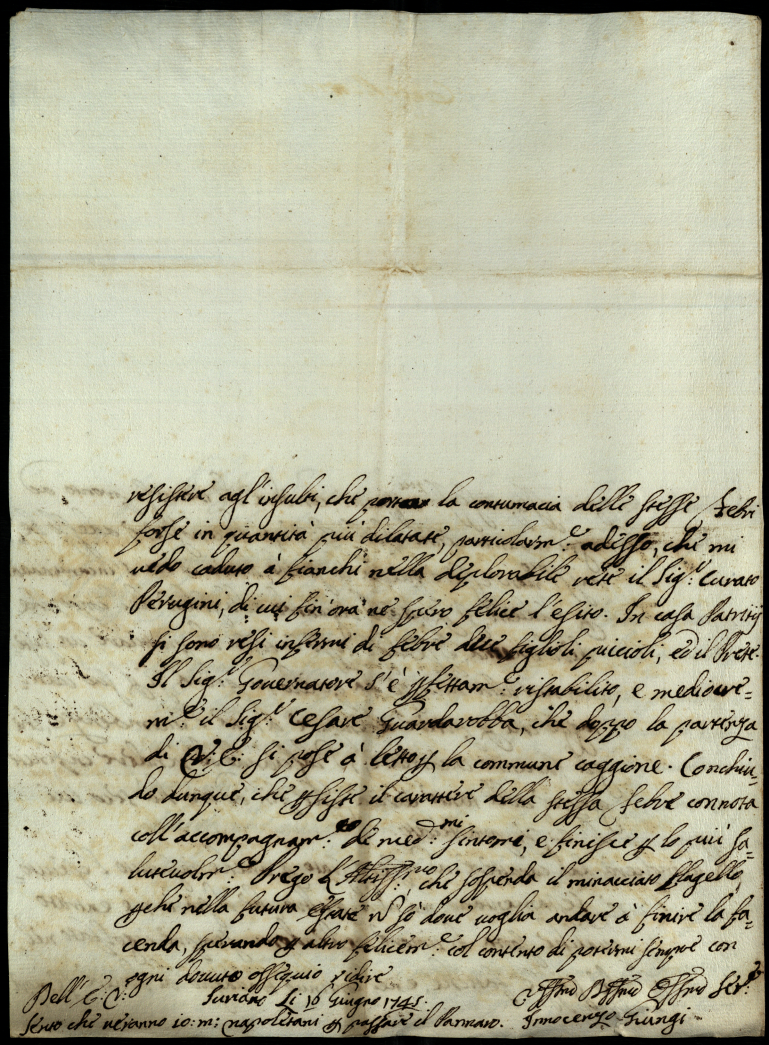 resistere agl'insulti, che portano la contumacia delle stesse febri
forse in quantità più dilatate, particolarm.e adesso, che mi
vedo caduto à fianchi nella deplorabile rete il Sig.r Curato
Perugini, di cui fin'ora ne spero felice l'esito. In casa Patritij
si sono resi infermi di febre due figlioli piccioli, ed il Prete.
Il Sig.r Governatore s'è pfettam.e ristabilito, e mediocre=
m.e il Sig.r Cesare Guardarobba, che doppo la partenza
di V.E. si pose à letto p la commune caggione. Conchiu=
do dunque, che psiste il carattere della stessa febre connota
coll'accompagnam.to de med.mi sintomi, e finisce p lo più sa=
lutevolm.e Prego l'Altiss.mo, che sospenda il minacciato flagello,
pche nella futura estate n sò dove voglia andare à finire la fa=
cenda, sperando p altro felicem.e col contento di potermi sempre con
ogni dovuto ossequio ridire
Dell'E.V.
Suriano Li 16 Giugno 1745.
Ser.e
Sento che veranno 10:m: napoletani p passare il Pannaro.
Innocenzo Giungi